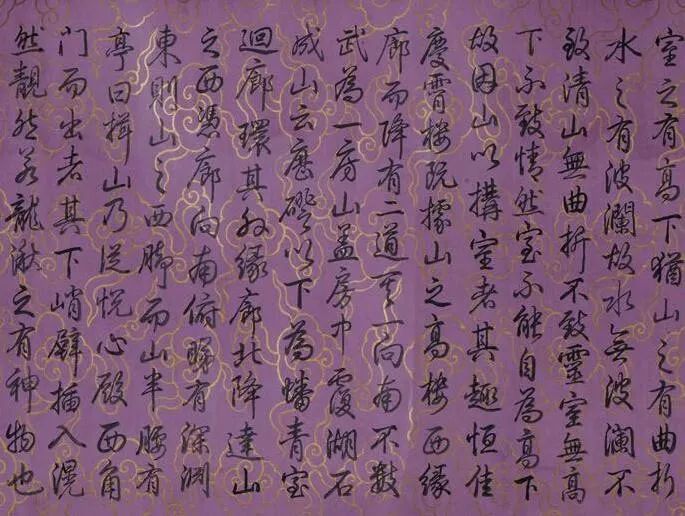 室之有高下猶山之有曲折
水之有波瀾故水無波瀾不
致清山無曲折不致靈室無高
下不致情然室不能自為高下
故因山以構室者其趣恒佳
慶霄樓既據山之高樓西緣
廊而降有二道其一向南不數
武為一房山蓋房中覆湖石
成山云歷磴以下為蟠青室
迴廊環其外緣廊北降達山
之西憑廊向南俯睇有深淵
東則山之西脚而山半腰有
亭曰揖山乃從悅心殿西角
門而出者其下峭壁插入滉
然靚然若龍湫之有神物也